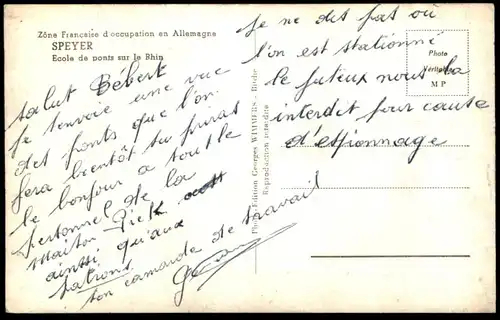 Zône Française d'occupation en Allemagne
SPEYER
Ecole de ponts sur le Rhin
salut Bébert
je t'envoie une vue
des ponts que l'on
fera bientôt tu
le bonjour a tout le
personnel de la
maison
ainsi qu'aux
patrons
ton camarade de travail
je ne dis pas où
l'on est stationné
le juteux nous l'a
interdit pour cause
d'espionnage
Photo
Véritable
M P
Photo-Edition Georges WIMMERS -
Reproduction interdite